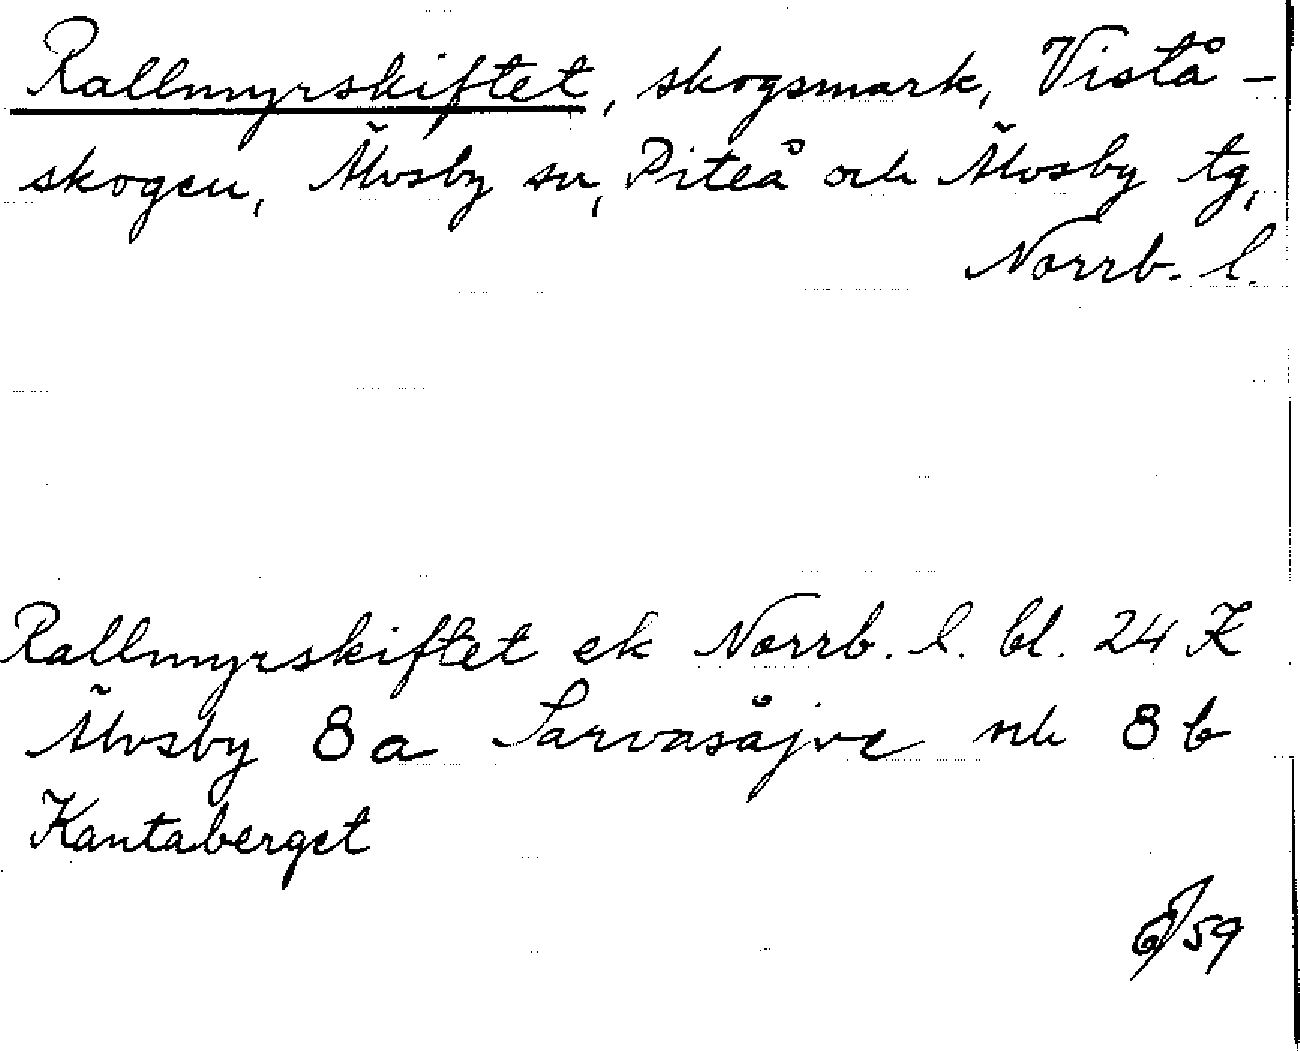 Rallmyrskiftet, skogsmark, Vistå-
skogen, Älvsby sn, Piteå och Älvsby tg,
Norrb. l.
Rallmyrskiftet ek Norrb. l. bl. 24 K
Älvsby 8a Sarvasåjve och 8b
Kantaberget
/59